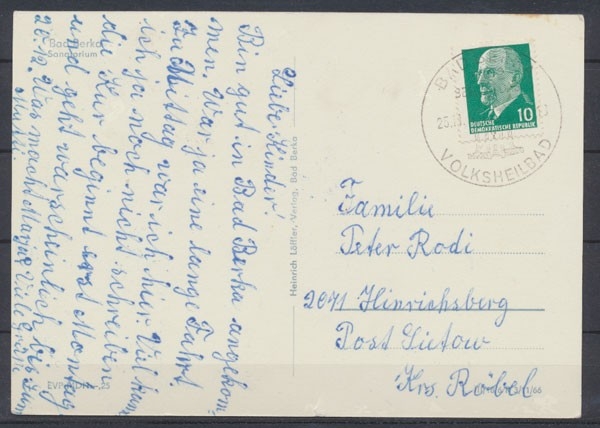 Bad Berka
Sanatorium
Liebe Kinder!
Bin gut in Bad Berka angekom-
men. War ja eine lange Fahrt
zu Mittag war ich hier. Viel kann
ich ja noch nicht schreiben
die Kur beginnt erst Montag
und geht warscheinlich bis zum
28.12. Was macht
Viele Grüße
Mutti
Heinrich Löffler, Verlag, Bad Berka
10
DEUTSCHE
DEMOKRATISCHE REPUBLIK
VOLKSHEILBAD
Familie
Peter Rodi
2071 Hinrichsberg
Post Lietow
Krs. Röbel